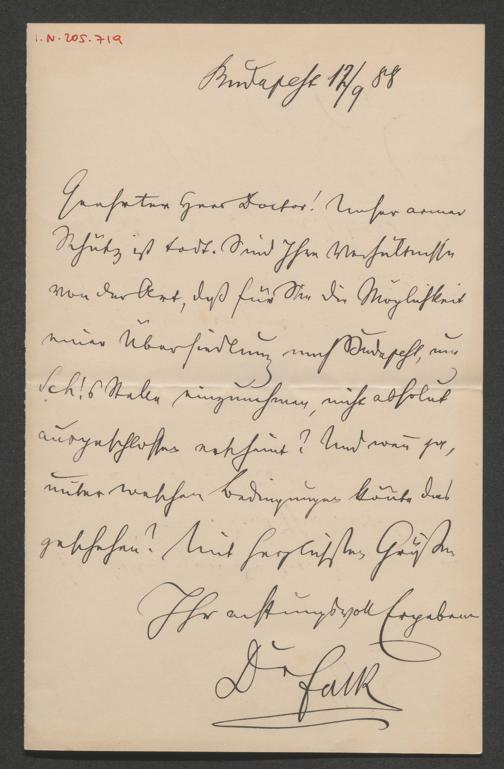 I.N. 205.719
Budapest 12/9 88
Geehrter Herr Doctor! Unser armer
Schütz ist todt. Sind Ihre Verhältnisse
von der Art, daß für Sie die Möglichkeit
einer Übersiedlung nach Budapest, um
Sch!s Stelle einzunehmen, nicht absolut
ausgeschlossen erscheint? Und wen̄ ja,
unter welchen Bedingungen kön̄te das
geschehen? Mit herzlichsten Grüßen
Ihr achtungsvoll Ergebener
Dr Falk